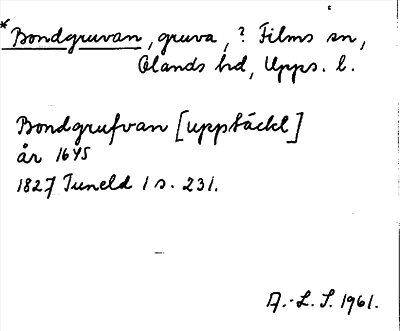 *Bondgruvan, gruva, ? Films sn,
Olands hd, Upps. l.
Bondgrufvan [upptäckt]
år 1645
1827 Tuneld 1 s. 231.
A.-L. S. 1961.